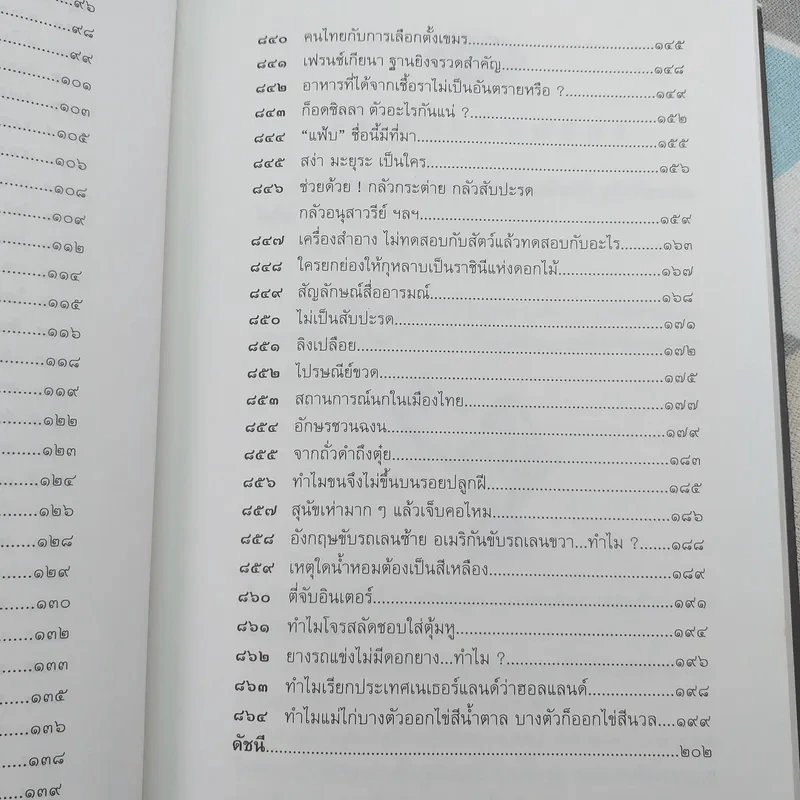 ๙๖
๙๘
๙๙
๑๐๑
๑๐๓
๑๐๕
๑๐๖
๑๐๘
๑๐๙
๑๑๒
๑๑๔
๑๑๕
๑๑๖
๑๑๘
๑๑๙
๑๒๒
๑๒๓
๑๒๔
๑๒๖
๑๒๘
๑๒๙
๑๓๐
๑๓๒
๑๓๓
๑๓๕
๑๓๖
๑๓๘
๑๓๙
๘๔๐ คนไทยกับการเลือกตั้งเขมร...๑๔๕
๘๔๑ เฟรนช์เกียนา ฐานยิงจรวดสำคัญ...๑๔๘
๘๔๒ อาหารที่ได้จากเชื้อราไม่เป็นอันตรายหรือ ?...๑๔๙
๘๔๓ ก็อดซิลลา ตัวอะไรกันแน่ ?...๑๕๒
๘๔๔ “แฟ้บ” ชื่อนี้มีที่มา...๑๕๕
๘๔๕ สง่า มะยุระ เป็นใคร...๑๕๖
๘๔๖ ช่วยด้วย ! กลัวกระต่าย กลัวสับปะรด
กลัวอนุสาวรีย์ ฯลฯ...๑๕๙
๘๔๗ เครื่องสำอาง ไม่ทดสอบกับสัตว์แล้วทดสอบกับอะไร...๑๖๓
๘๔๘ ใครยกย่องให้กุหลาบเป็นราชินีแห่งดอกไม้...๑๖๗
๘๔๙ สัญลักษณ์สื่ออารมณ์...๑๖๘
๘๕๐ ไม่เป็นสับปะรด...๑๗๑
๘๕๑ ลิงเปลือย...๑๗๒
๘๕๒ ไปรษณีย์ขวด...๑๗๕
๘๕๓ สถานการณ์นกในเมืองไทย...๑๗๗
๘๕๔ อักษรชวนฉงน...๑๗๙
๘๕๕ จากถั่วดำถึงตุ๋ย...๑๘๓
๘๕๖ ทำไมขนจึงไม่ขึ้นบนรอยปลูกฝี...๑๘๕
๘๕๗ สุนัขเห่ามาก ๆ แล้วเจ็บคอไหม...๑๘๖
๘๕๘ อังกฤษขับรถเลนซ้าย อเมริกันขับรถเลนขวา...ทำไม ?...๑๘๘
๘๕๙ เหตุใดน้ำหอมต้องเป็นสีเหลือง...๑๘๙
๘๖๐ ตี่จับอินเตอร์...๑๙๑
๘๖๑ ทำไมโจรสลัดชอบใส่ตุ้มหู...๑๙๔
๘๖๒ ยางรถแข่งไม่มีดอกยาง...ทำไม ?...๑๙๖
๘๖๓ ทำไมเรียกประเทศเนเธอร์แลนด์ว่าฮอลแลนด์...๑๙๘
๘๖๔ ทำไมแม่ไก่บางตัวออกไข่สีน้ำตาล บางตัวก็ออกไข่สีนวล...๑๙๙
ดัชนี...๒๐๒